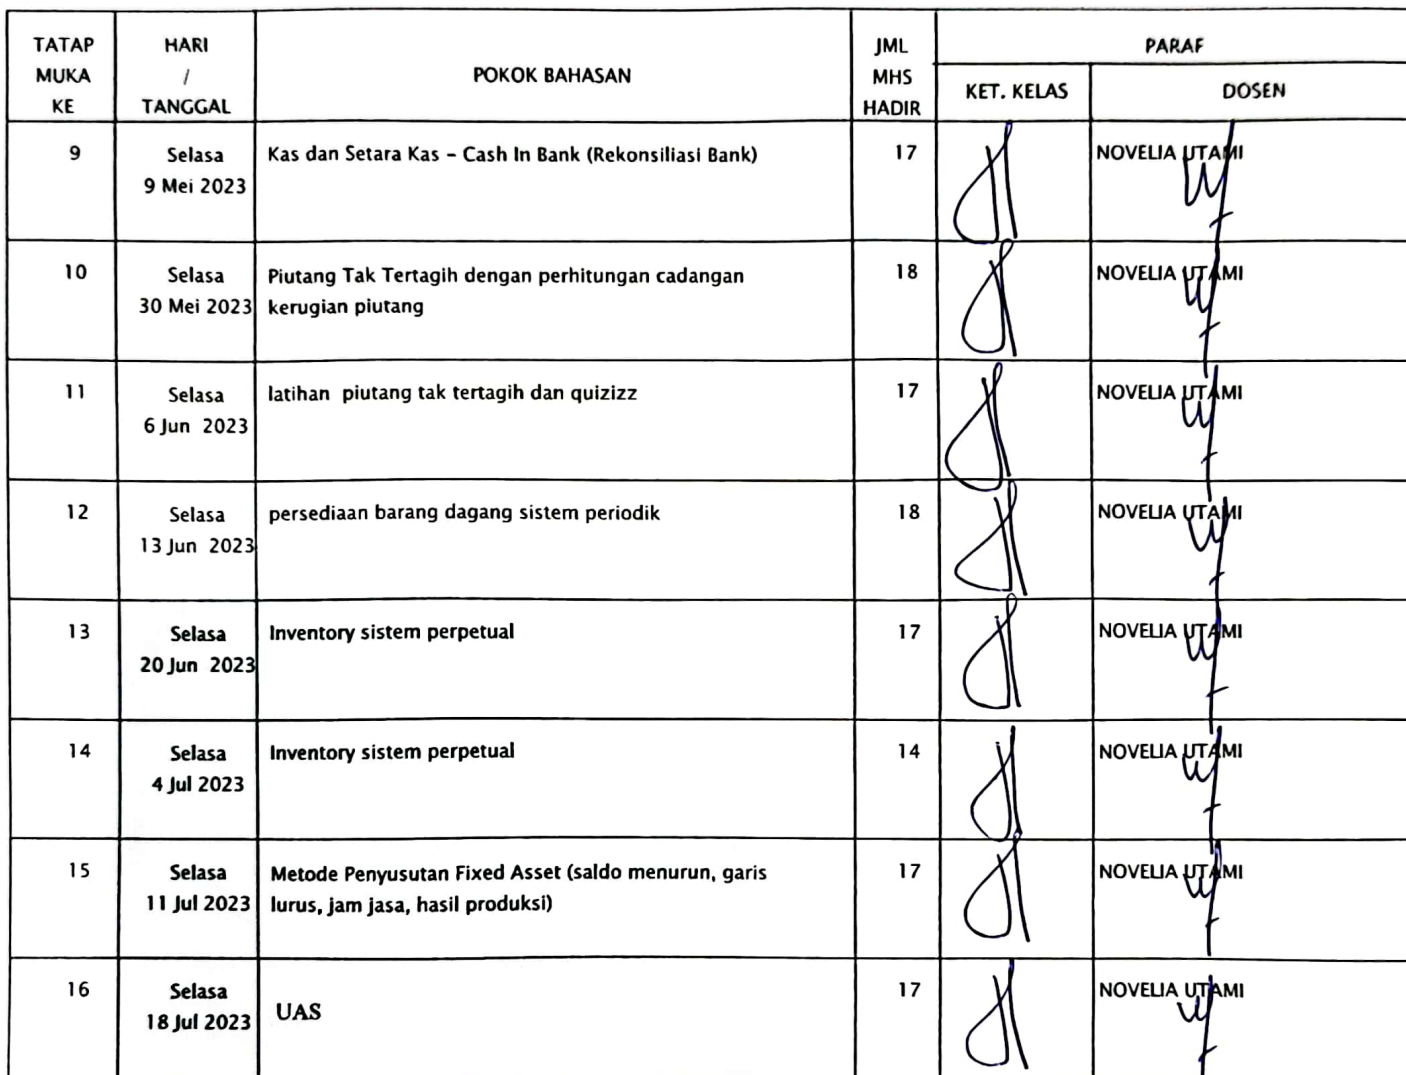 TATAP MUKA KE
HARI / TANGGAL
POKOK BAHASAN
JML MHS HADIR
PARAF
KET. KELAS
DOSEN
9
Selasa
9 Mei 2023
Kas dan Setara Kas – Cash In Bank (Rekonsiliasi Bank)
17
NOVELIA UTAMI
10
Selasa
30 Mei 2023
Piutang Tak Tertagih dengan perhitungan cadangan
kerugian piutang
18
NOVELIA UTAMI
11
Selasa
6 Jun 2023
latihan piutang tak tertagih dan quizizz
17
NOVELIA UTAMI
12
Selasa
13 Jun 2023
persediaan barang dagang sistem periodik
18
NOVELIA UTAMI
13
Selasa
20 Jun 2023
Inventory sistem perpetual
17
NOVELIA UTAMI
14
Selasa
4 Jul 2023
Inventory sistem perpetual
14
NOVELIA UTAMI
15
Selasa
11 Jul 2023
Metode Penyusutan Fixed Asset (saldo menurun, garis
lurus, jam jasa, hasil produksi)
17
NOVELIA UTAMI
16
Selasa
18 Jul 2023
UAS
17
NOVELIA UTAMI